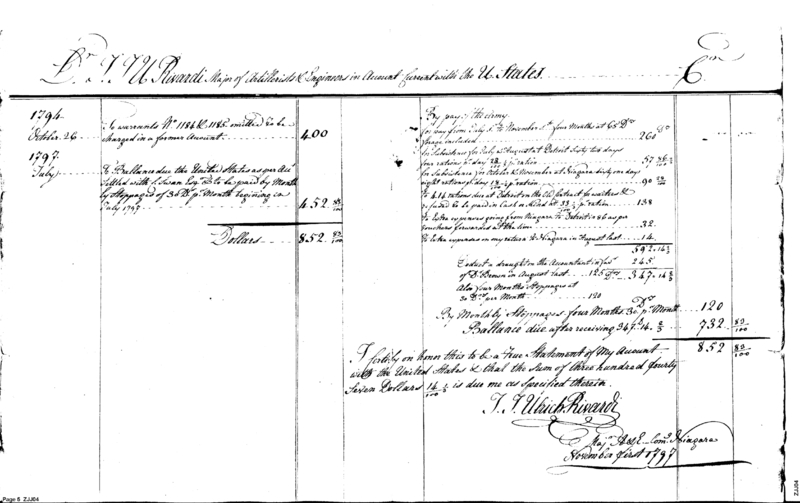 Dr J. J. U. Rivardi Major of Artillerists & Engineers in Account Current with the U. States. Cr
1794.
October 26
To warrants No 1184 & 1185 omitted to be
charged in a former Account 400
1797.
July
To Ballance due the United States as per Acct
settled with Susan Esqr & to be paid by Month
ly Stoppages of 30 Drs pr Month beginning in
July 1797 452 83/100
Dollars 852 83/100
By pay & the Army
for pay from July 1st to November 1st four Months at 65 Drs
forage included 260 Drs
for Subsistence for July & August at Detroit Sixty two days
four rations pr day pr ration 57
for Subsistence for October & November at Niagara Sixty one days
eight rations pr day pr ration 90
To 414 rations due at Detroit on the Contractor
refused to be paid in Cash or Kind at 33 1/3 pr ration 138
To Extra expences going from Niagara to Detroit in 86 as per
vouchers forwarded at the time 32
To Extra expences on my return to Niagara in August last 14
592.16
Deduct a draught on the Accountant in favr 245
of Dr Brown in August last 125 Drs 347.14
Also four Months Stoppages at
30 Drs per Month 120
By Monthly Stoppages four Months 30 Drs pr Month 120
Ballance due after receiving 347.14 732 83/100
852 83/100
I Certify on honor this to be a true Statement of My Account
with the United States & that the Sum of three hundred fourty
Seven Dollars 14/100 is due me as Specified therein.
J. J. Ulrich Rivardi
Majr A & E Comg Niagara
November first 1797
Page 5 ZJJ04
ZJJ04